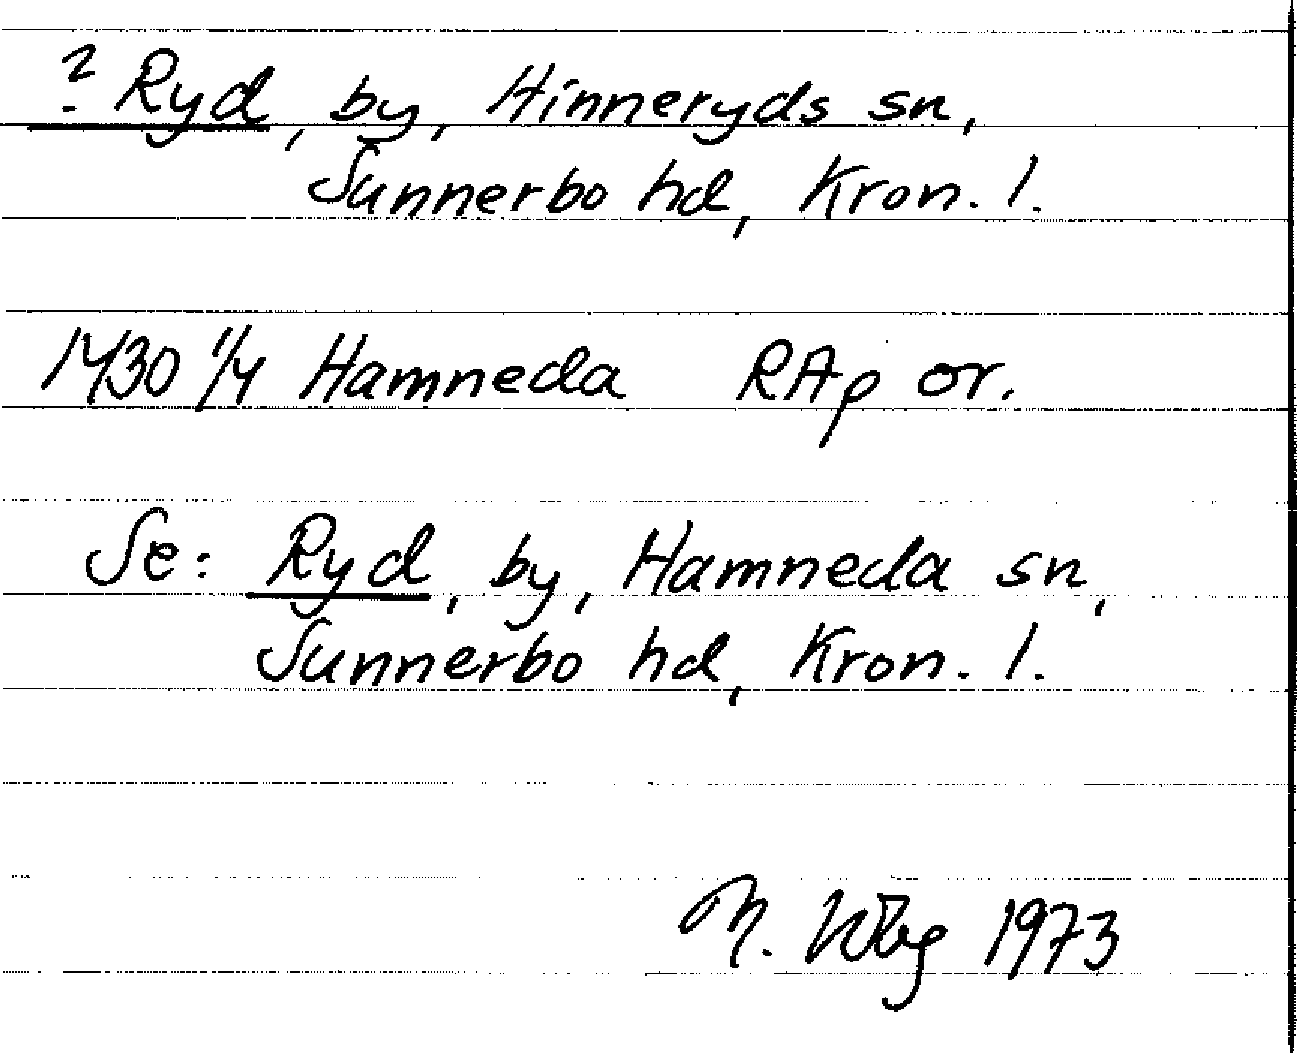 ? Ryd, by, Hinneryds sn,
Sunnerbo hd, Kron. l.
1430 1/4 Hamneda RAp or.
Se: Ryd, by, Hamneda sn,
Sunnerbo hd, Kron. l.
1973